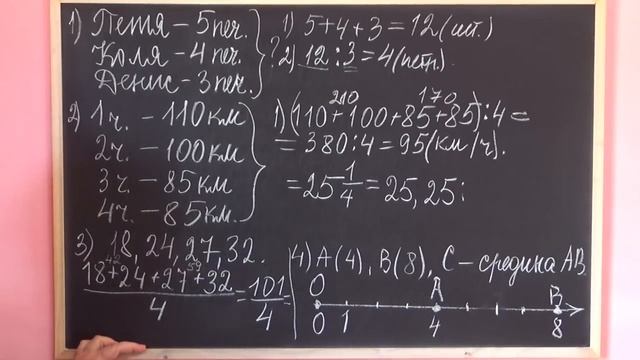 1) Петя – 5 печ.
Коля – 4 печ.
Денис – 3 печ.
?
1) 5+4+3=12 (шт.)
2) 12:3=4
2) 1ч. – 110 км
2ч. – 100 км
3ч. – 85 км
4ч. – 85 км
210 170
1) (110+100+85+85):4=
=380:4=95 (км/ч).
3) 18, 24, 27, 32.
42 59
18+24+27+32
4
=
101
4
=
=25 1/4=25,25;
4) A(4), B(8), C – средина AB
O A B
0 1 4 8